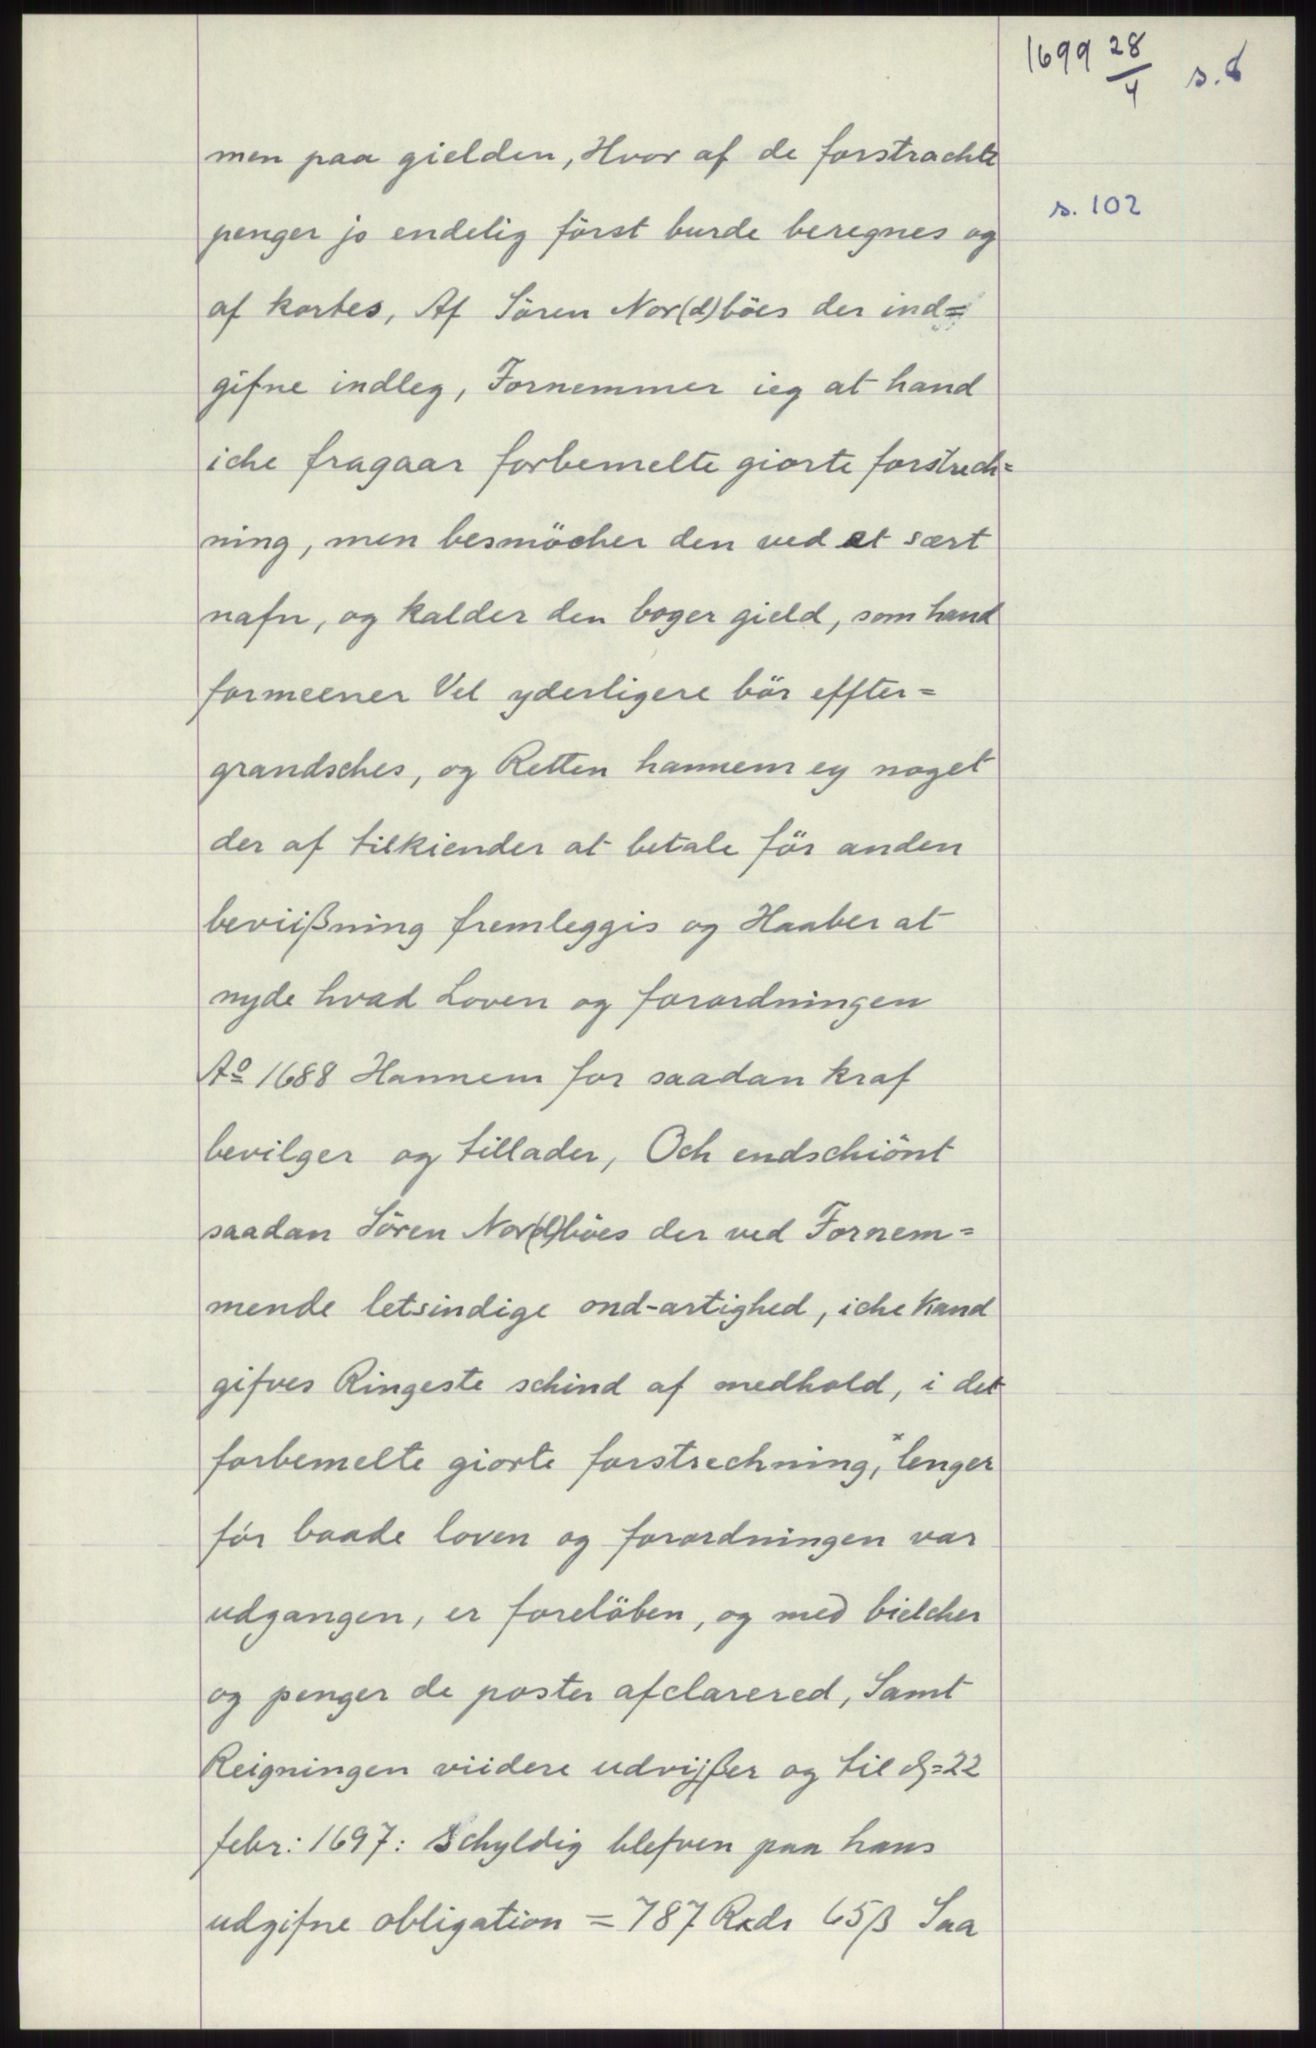 1699 28/4 s. 6
men paa gielden, Hvor af de forstrachte
s. 102
penger jo endelig först burde beregnes og
af kortes, Af Sören Nor(d)böes der ind=
gifne indleg, Fornemmer ieg at hand
iche fragaar forbemelte giorte forstrech=
ning, men besmöcher den ved et sært
nafn, og kalder den boger gield, som hand
formeener Vel yderligere bör effter=
grandsches, og Retten hannem ey noget
der af tilkiender at betale för anden
beviißning fremleggis og Haaber at
nyde hvad Loven og forordningen
Aº 1688 Hannem for saadan kraf
bevilger og tillader, Och endschiönt
saadan Sören Nor(d)böes der ved Fornem=
mende letsindige ond-artighed, iche kand
gifves Ringeste schind af medhold, i det
forbemelte giorte forstrechning, x lenger
för baade loven og forordningen var
udgangen, er foreløben, og med bielcher
og penger de poster afclarered, Samt
Reigningen viidere udvijßer og til d = 22
febr: 1697: Schyldig blefven paa hans
udgifne obligation = 787 Rxdr 65ß Saa